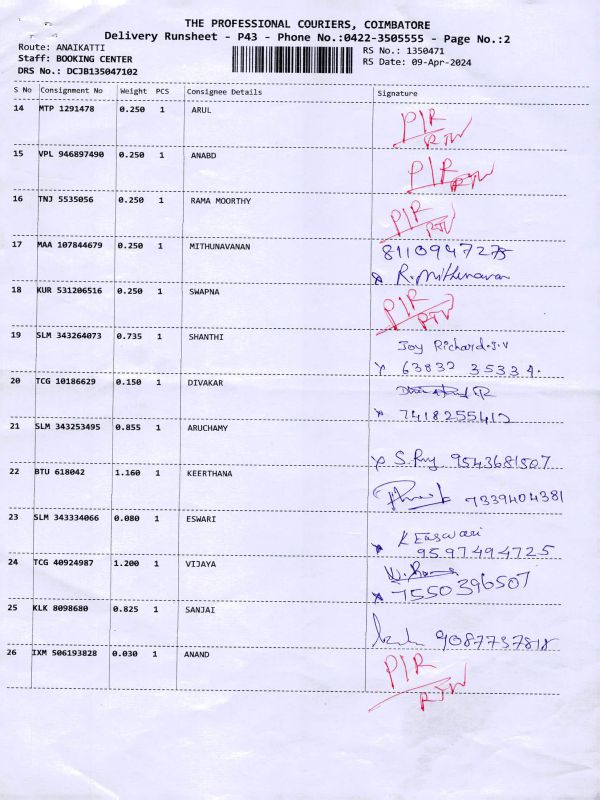 THE PROFESSIONAL COURIERS, COIMBATORE
Delivery Runsheet - P43 - Phone No.:0422-3505555 - Page No.:2
Route: ANAIKATTI
RS No.: 1350471
Staff: BOOKING CENTER
RS Date: 09-Apr-2024
DRS No.: DCJB135047102
S No Consignment No Weight PCS Consignee Details Signature
14 MTP 1291478 0.250 1 ARUL P/R
RTW
15 VPL 946897490 0.250 1 ANABD P/R RTW
16 TNJ 5535056 0.250 1 RAMA MOORTHY P/R
RTW
17 MAA 107844679 0.250 1 MITHUNAVANAN 8110947275
R. Mithunavan
18 KUR 531206516 0.250 1 SWAPNA P/R
RTW
19 SLM 343264073 0.735 1 SHANTHI Joy Richard.J.V
63832 35334.
20 TCG 10186629 0.150 1 DIVAKAR
7418255412
21 SLM 343253495 0.855 1 ARUCHAMY
9543681507
22 BTU 618042 1.160 1 KEERTHANA
7339404381
23 SLM 343334066 0.080 1 ESWARI K Easwari
9597494725
24 TCG 40924987 1.200 1 VIJAYA
7550396507
25 KLK 8098680 0.825 1 SANJAI
9087737818
26 IXM 506193828 0.030 1 ANAND P/R
RTW